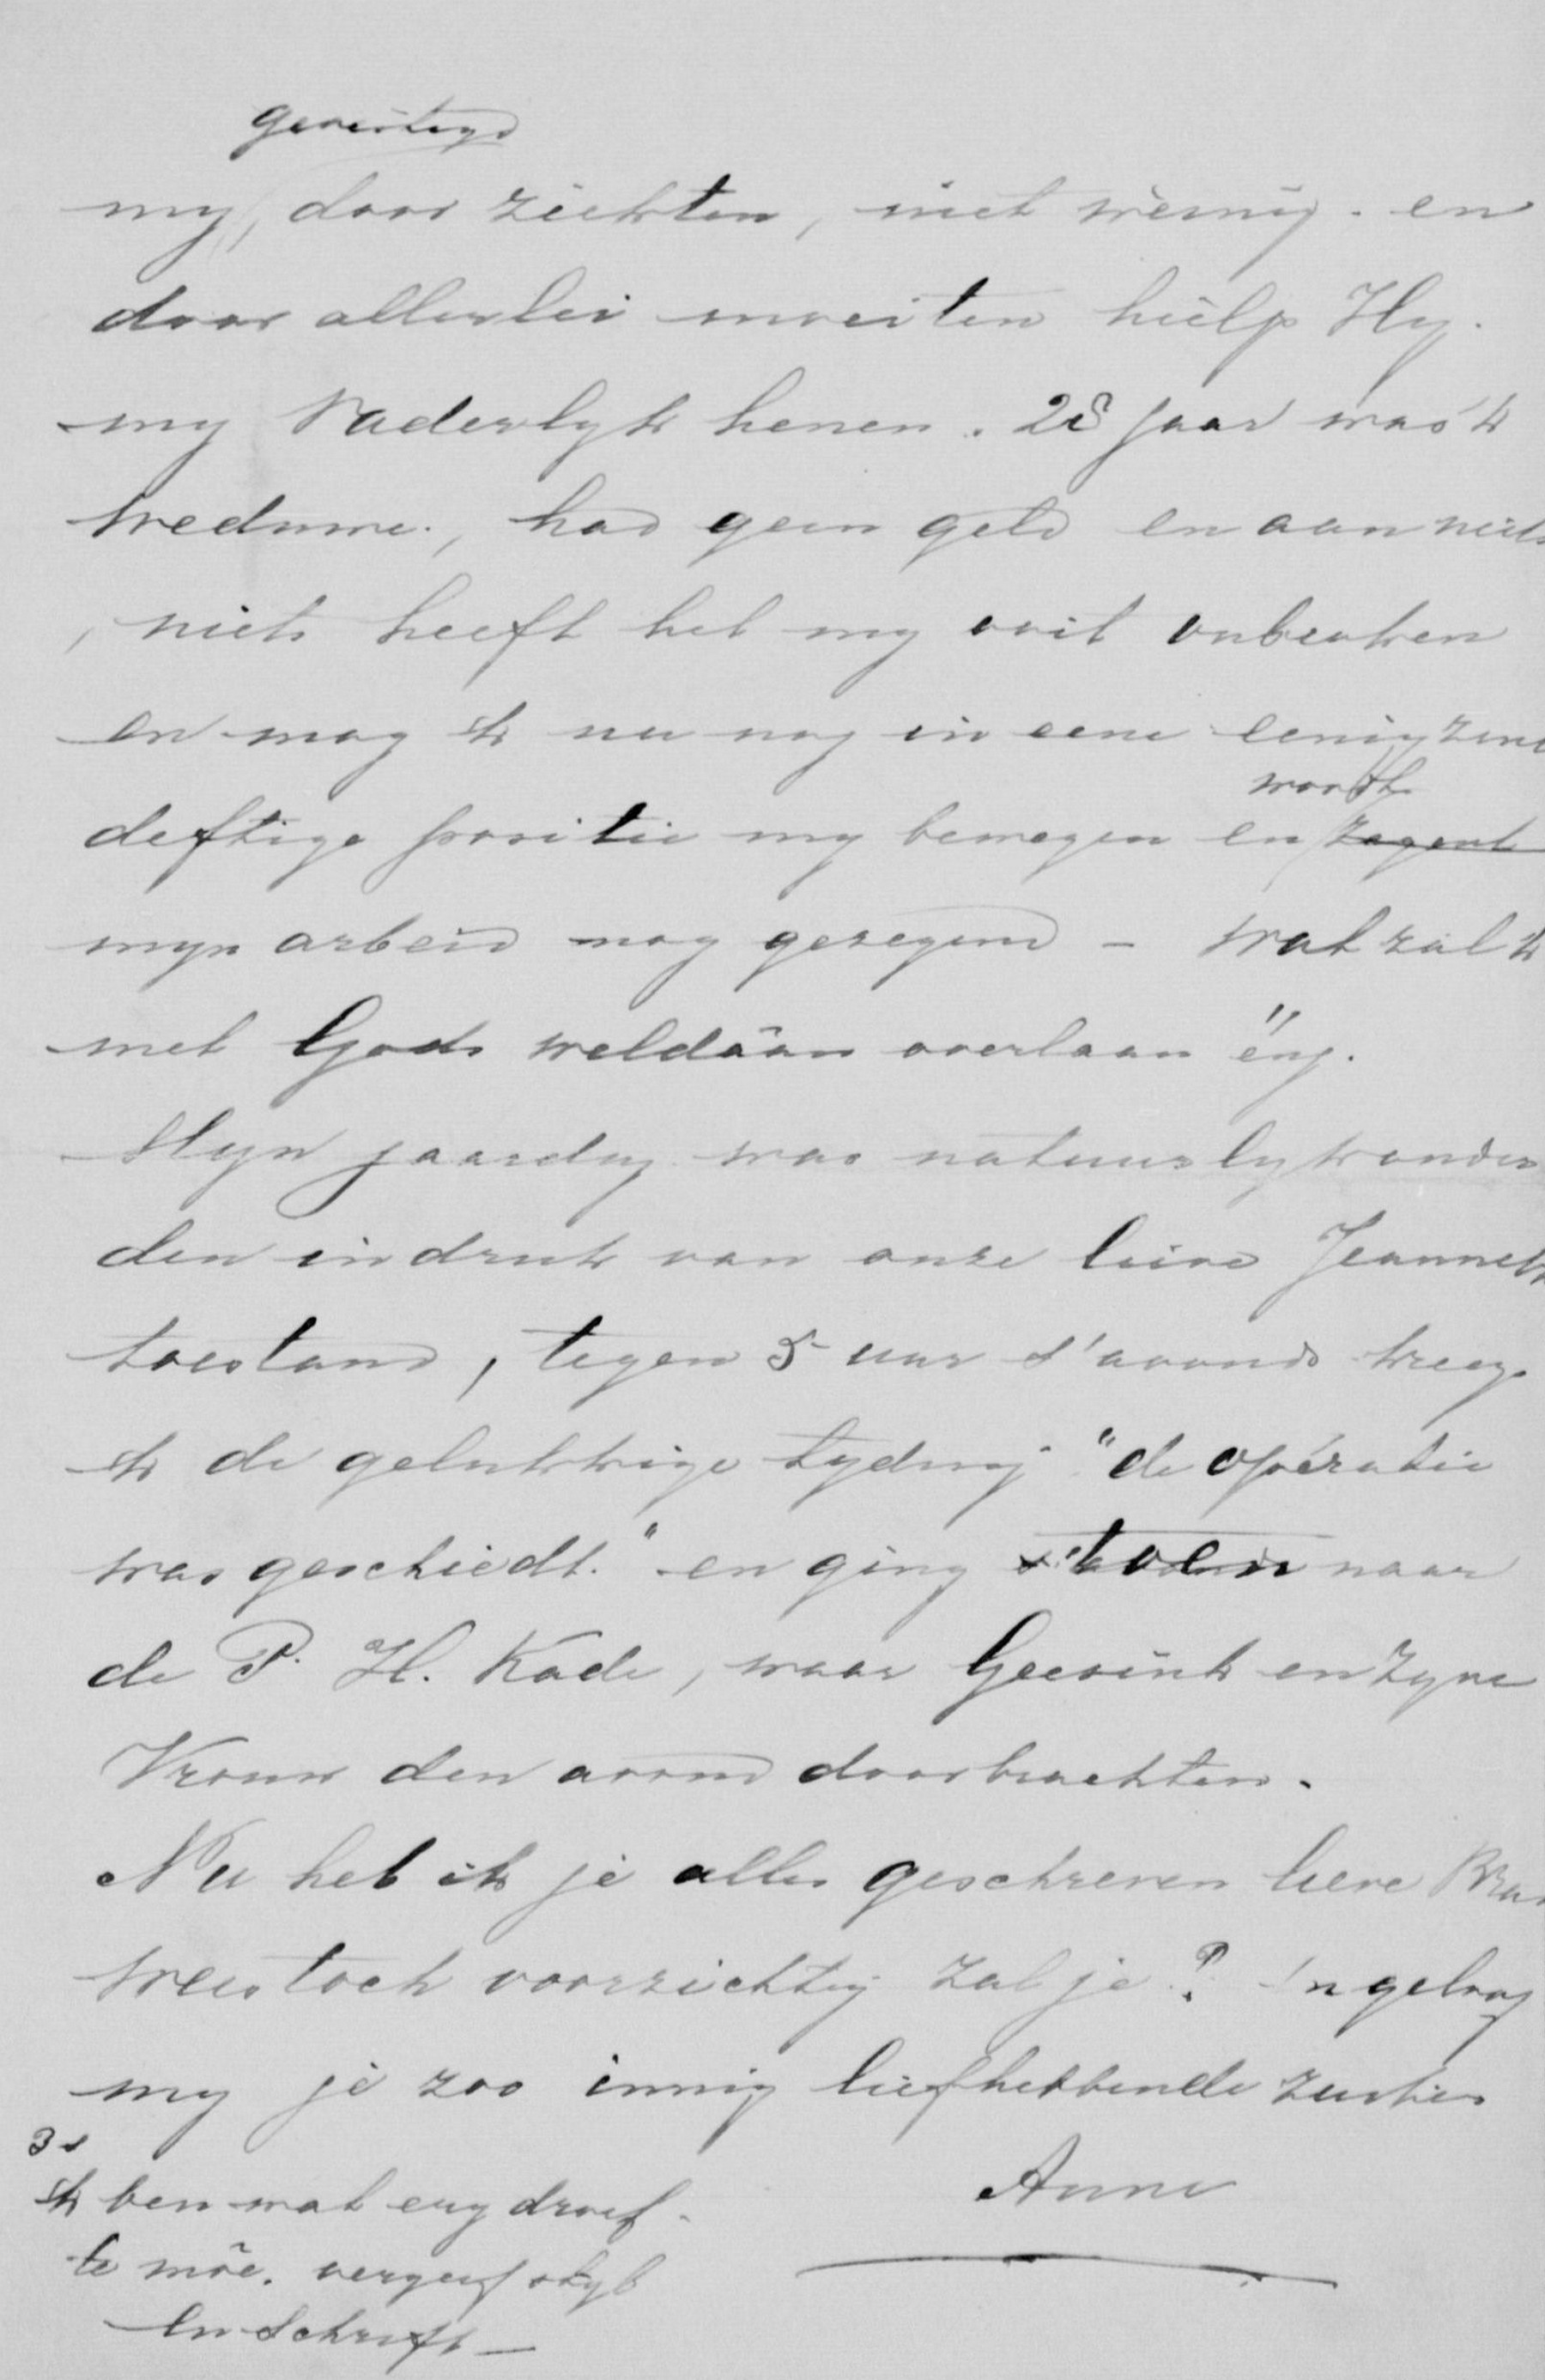 gevestigd
my, door ziekten, niet weinig. en
door allerlei moeiten hielp Hy.
my Vaderlyk henen. 28 jaar was 'k
weduwe., had geen geld en aan niets
, niets heeft het my ooit ontbroken
en mag ik nu nog in eene eenigzins
wordt
deftige positie my bewegen en zegent
myn arbeid nog gezegend – wat zal 'k
met Gods weldâan overlaan "enz.
Myn jaardag was natuurlyk onder
den indruk van onze lieve Jeannets
toestand, tegen 5 uur s'avonds kreeg
ik de gelukkige tyding "de opératie
was geschiedt." en ging toen naar
de P. H. Kade, waar Geesink en zyne
Vrouw den avond doorbrachten.
Nu heb ik je alles geschreven lieve Bram
wees toch voorzichtig zal je? 'n geloof
my je zoo innig liefhebbende zuster
Anna
Ik ben wat erg droef.
te môe. vergeef styl
en schrift –